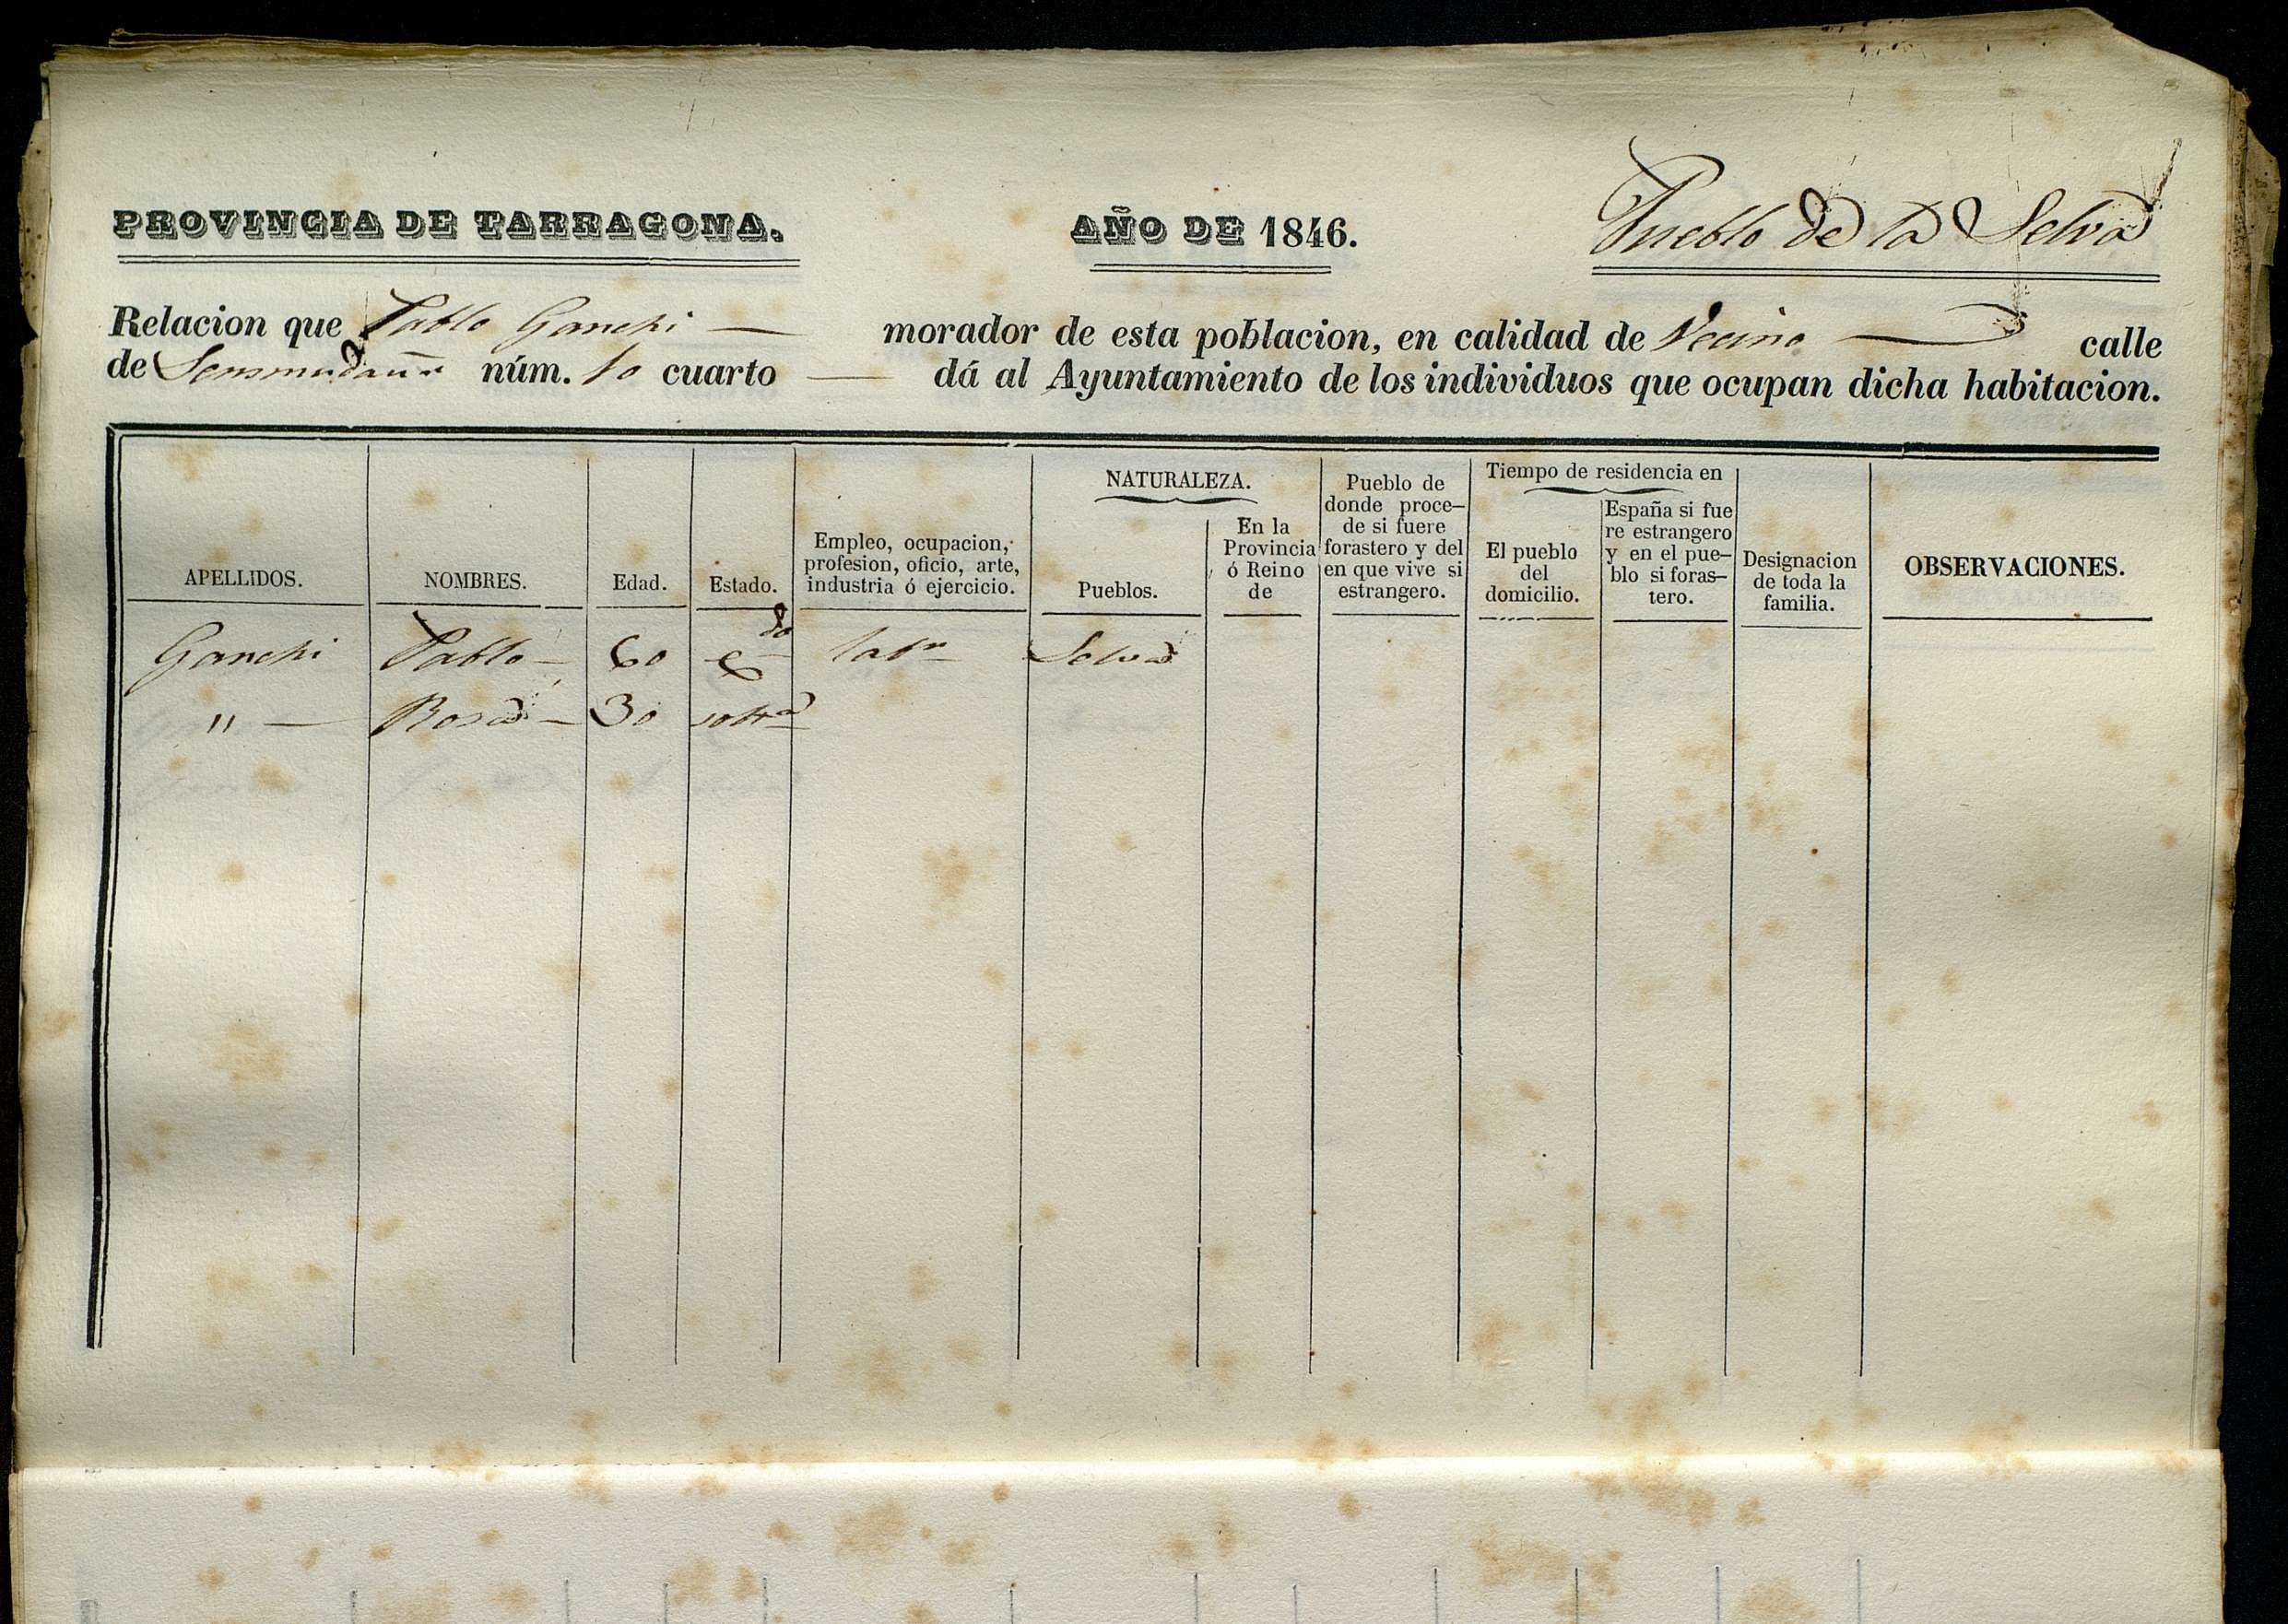 PROVINCIA DE TARRAGONA. AÑO DE 1846. Pueblo de la Selva
Relacion que Pablo Ganchi — morador de esta poblacion, en calidad de Vecino — calle
de núm. 10 cuarto — dá al Ayuntamiento de los individuos que ocupan dicha habitacion.
APELLIDOS.
NOMBRES.
Edad.
Estado.
Empleo, ocupacion,
profesion, oficio, arte,
industria ó ejercicio.
NATURALEZA.
Pueblos.
En la
Provincia
ó Reino
de
Pueblo de
donde proce-
de si fuere
forastero y del
en que vive si
estrangero.
Tiempo de residencia en
El pueblo
del
domicilio.
España si fue
re estrangero
y en el pue-
blo si foras-
tero.
Designacion
de toda la
familia.
OBSERVACIONES.
Ganchi Pablo — 60 labr Selva
" — Rosa — 30 soltra